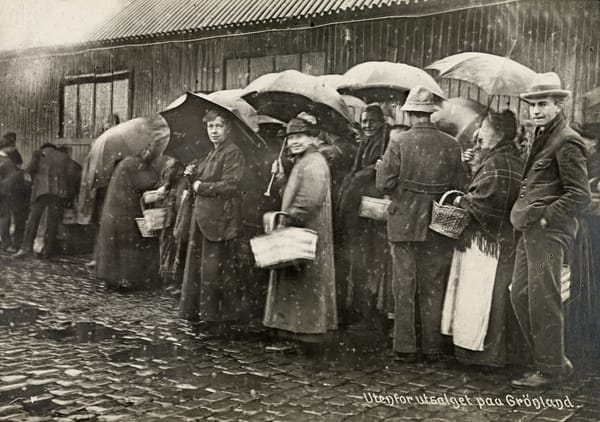 Utenfor utsalget paa Grönland.